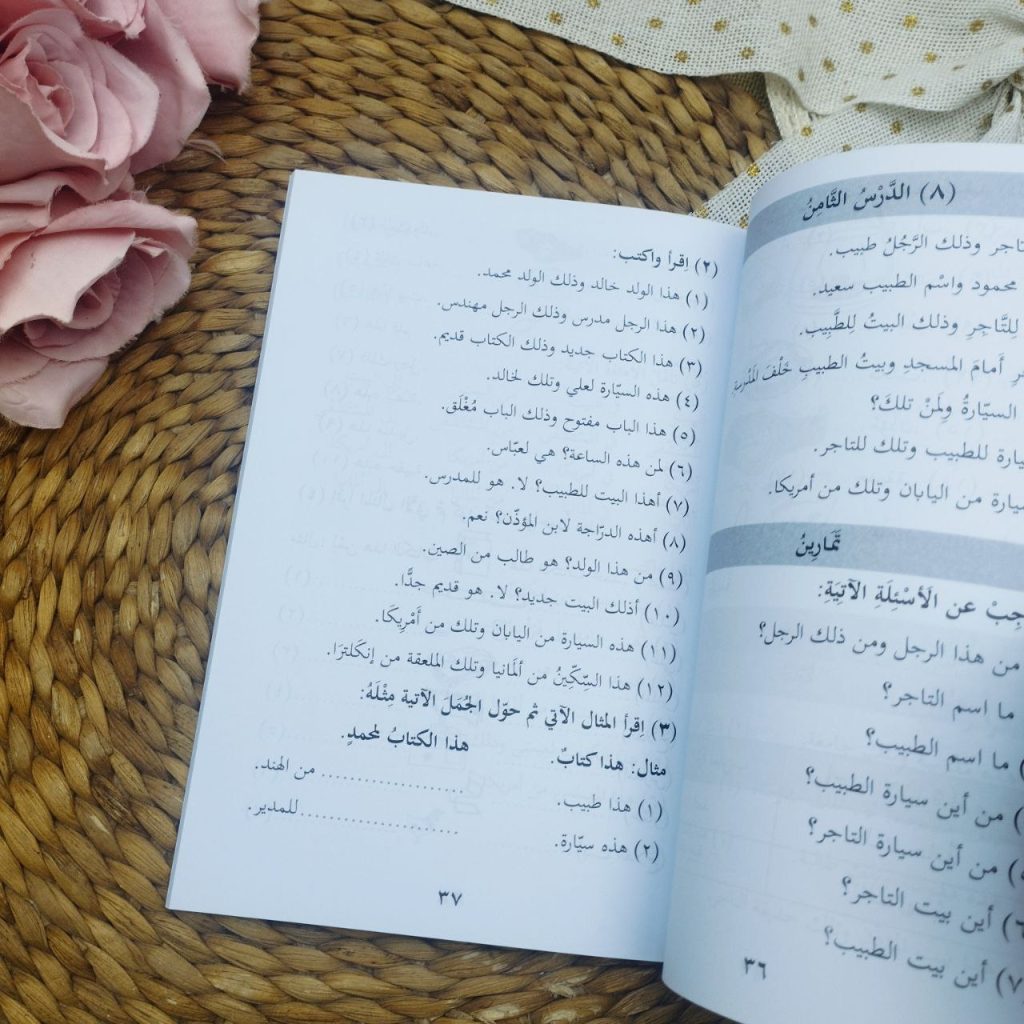 (٨) الدَّرْسُ الثَّامِنُ
تاجر وذلك الرَّجُلُ طبيب.
محمود واسْم الطبيب سعيد.
لِلتَّاجِرِ وذلك البيتُ لِلطَّبِيب.
أَمامَ المسجدِ وبيتُ الطبيبِ خَلْفَ المَدْرَسةِ
السيّارةُ ولِمَنْ تلكَ؟
للطبيب وتلك للتاجر.
من اليابان وتلك من أمريكا.
تَمَارِينُ
عن الأَسْئِلَةِ الآتِيَةِ:
من هذا الرجل ومن ذلك الرجل؟
ما اسم التاجر؟
ما اسم الطبيب؟
من أين سيارة الطبيب؟
من أين سيارة التاجر؟
أين بيت التاجر؟
٧) أين بيت الطبيب؟
٣٦
(٢) اِقرأ واكتب:
(١) هذا الولد خالد وذلك الولد محمد.
(٢) هذا الرجل مدرس وذلك الرجل مهندس.
(٣) هذا الكتاب جديد وذلك الكتاب قديم.
(٤) هذه السيّارة لعلي وتلك لخالد.
(٥) هذا الباب مفتوح وذلك الباب مُغْلَق.
(٦) لمن هذه الساعة؟ هي لعبّاس.
(٧) أهذا البيت للطبيب؟ لا. هو للمدرس.
(٨) أهذه الدرّاجة لابن المؤذّن؟ نعم.
(٩) من هذا الولد؟ هو طالب من الصين.
(١٠) أذلك البيت جديد؟ لا. هو قديم جدًّا.
(١١) هذه السيارة من اليابان وتلك من أَمْرِيكَا.
(١٢) هذا السِّكِّينُ من ألمانيا وتلك الملعقة من إنكَلترَا.
(٣) اِقرأ المثال الآتي ثم حوّل الجُمَلَ الآتية مِثْلَهُ:
مثال: هذا كتابٌ. هذا الكتابُ لمحمدٍ.
(١) هذا طبيب. .................... من الهند.
(٢) هذه سيّارة. ......................للمدير.
٣٧